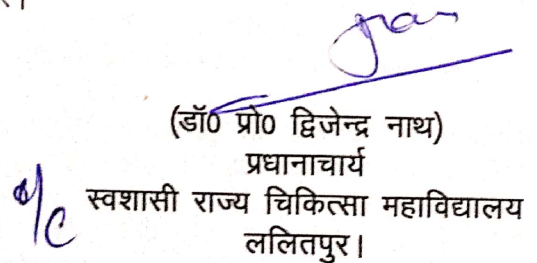 (डॉ0 प्रो0 द्विजेन्द्र नाथ)
प्रधानाचार्य
स्वशासी राज्य चिकित्सा महाविद्यालय
ललितपुर।